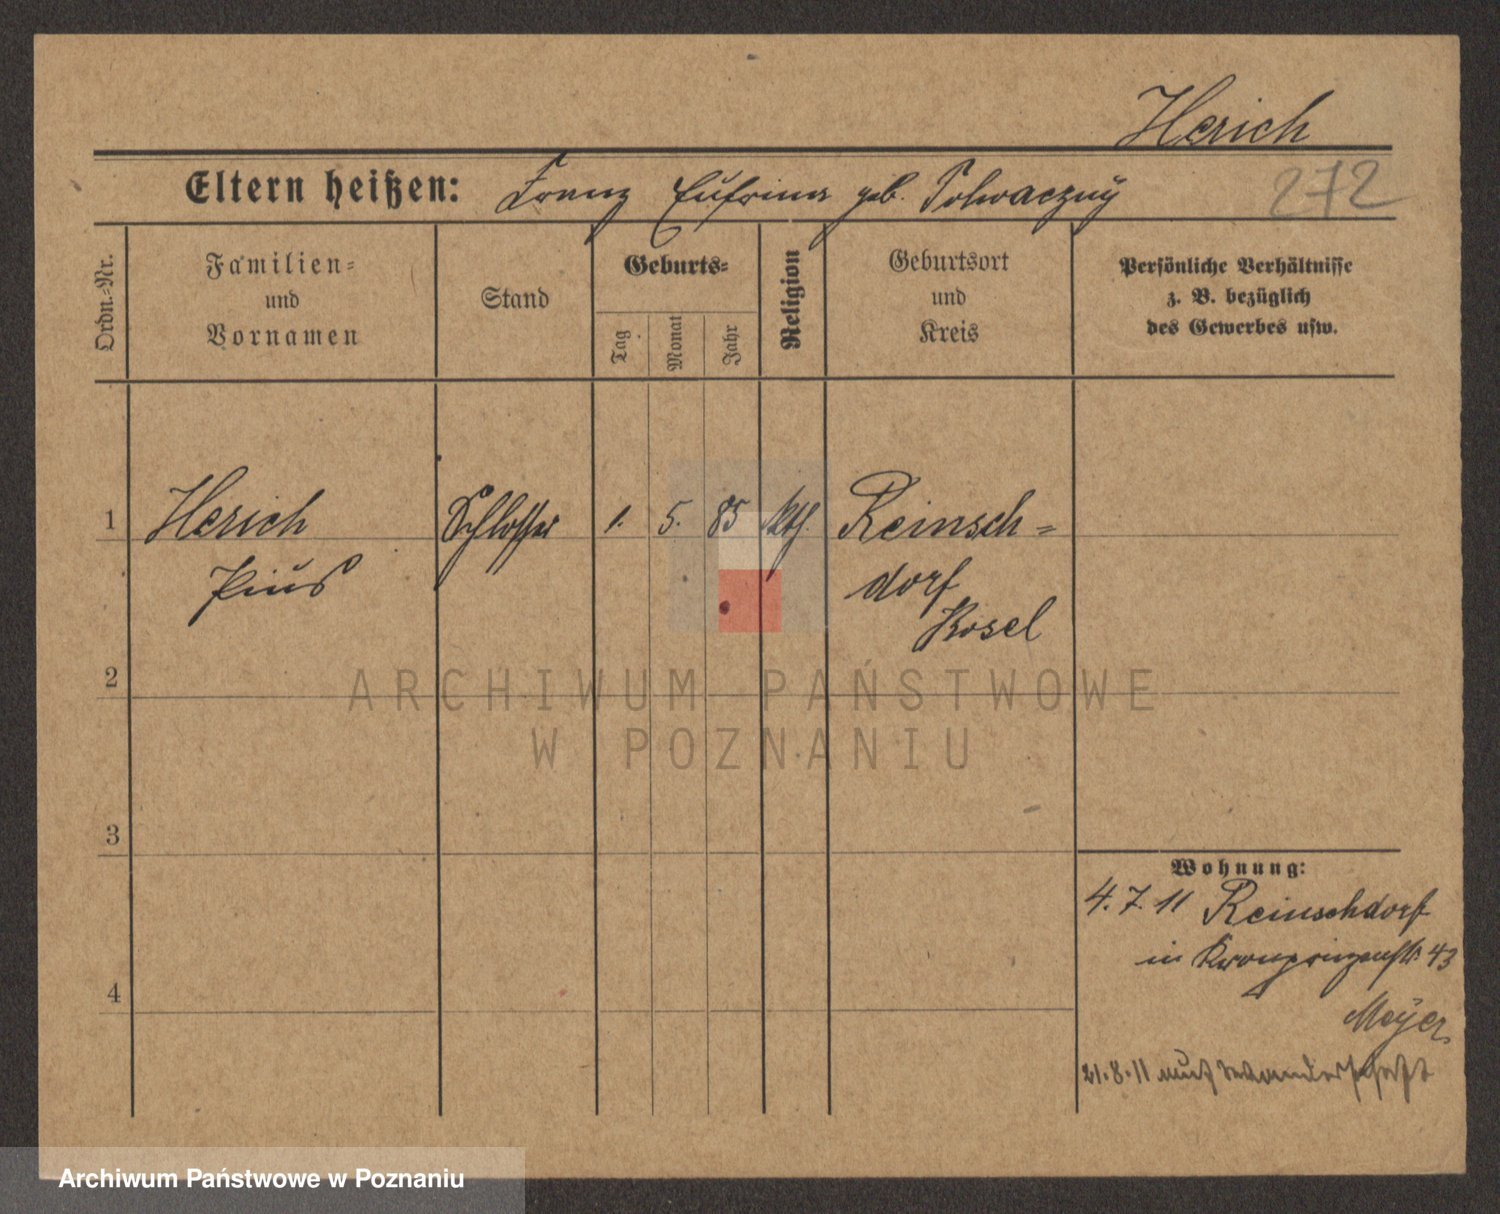 Herich
Eltern heißen: Franz Eufrina geb. Polwaczny
272
Ordn.-Nr.
Familien-
und
Vornamen
Stand
Geburts-
Tag
Monat
Jahr
Religion
Geburtsort
und
Kreis
Persönliche Verhältnisse
z. B. bezüglich
des Gewerbes usw.
1 Herich Schlosser 1. 5. 85 kth. Reinsch-
Pius dorf
Kosel
2
3
4
ARCHIWUM PAŃSTWOWE
W POZNANIU
Wohnung:
4. 7. 11 Reinschdorf
in Kronprinzenstr. 43
Meyer
21. 8. 11 auf Wanderschaft
Archiwum Państwowe w Poznaniu